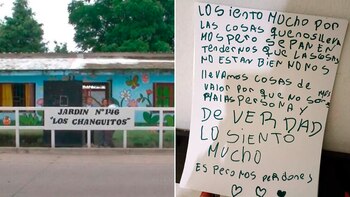 JARDIN Nº 146
"LOS CHANGUITOS"
LO SIENTO MUCHO POR
LAS COSAS QUE NOS LLEVA
MOS PERO SEPAN EN
TENDERNOS QUE LAS COSAS
NO ESTAN BIEN NO NOS
LLEVAMOS COSAS DE MAS
VALOR POR QUE NO SOMOS
MALAS PERSONA Y
DE VERDAD
LO SIENTO
MUCHO
ESPERO NOS PERDONES